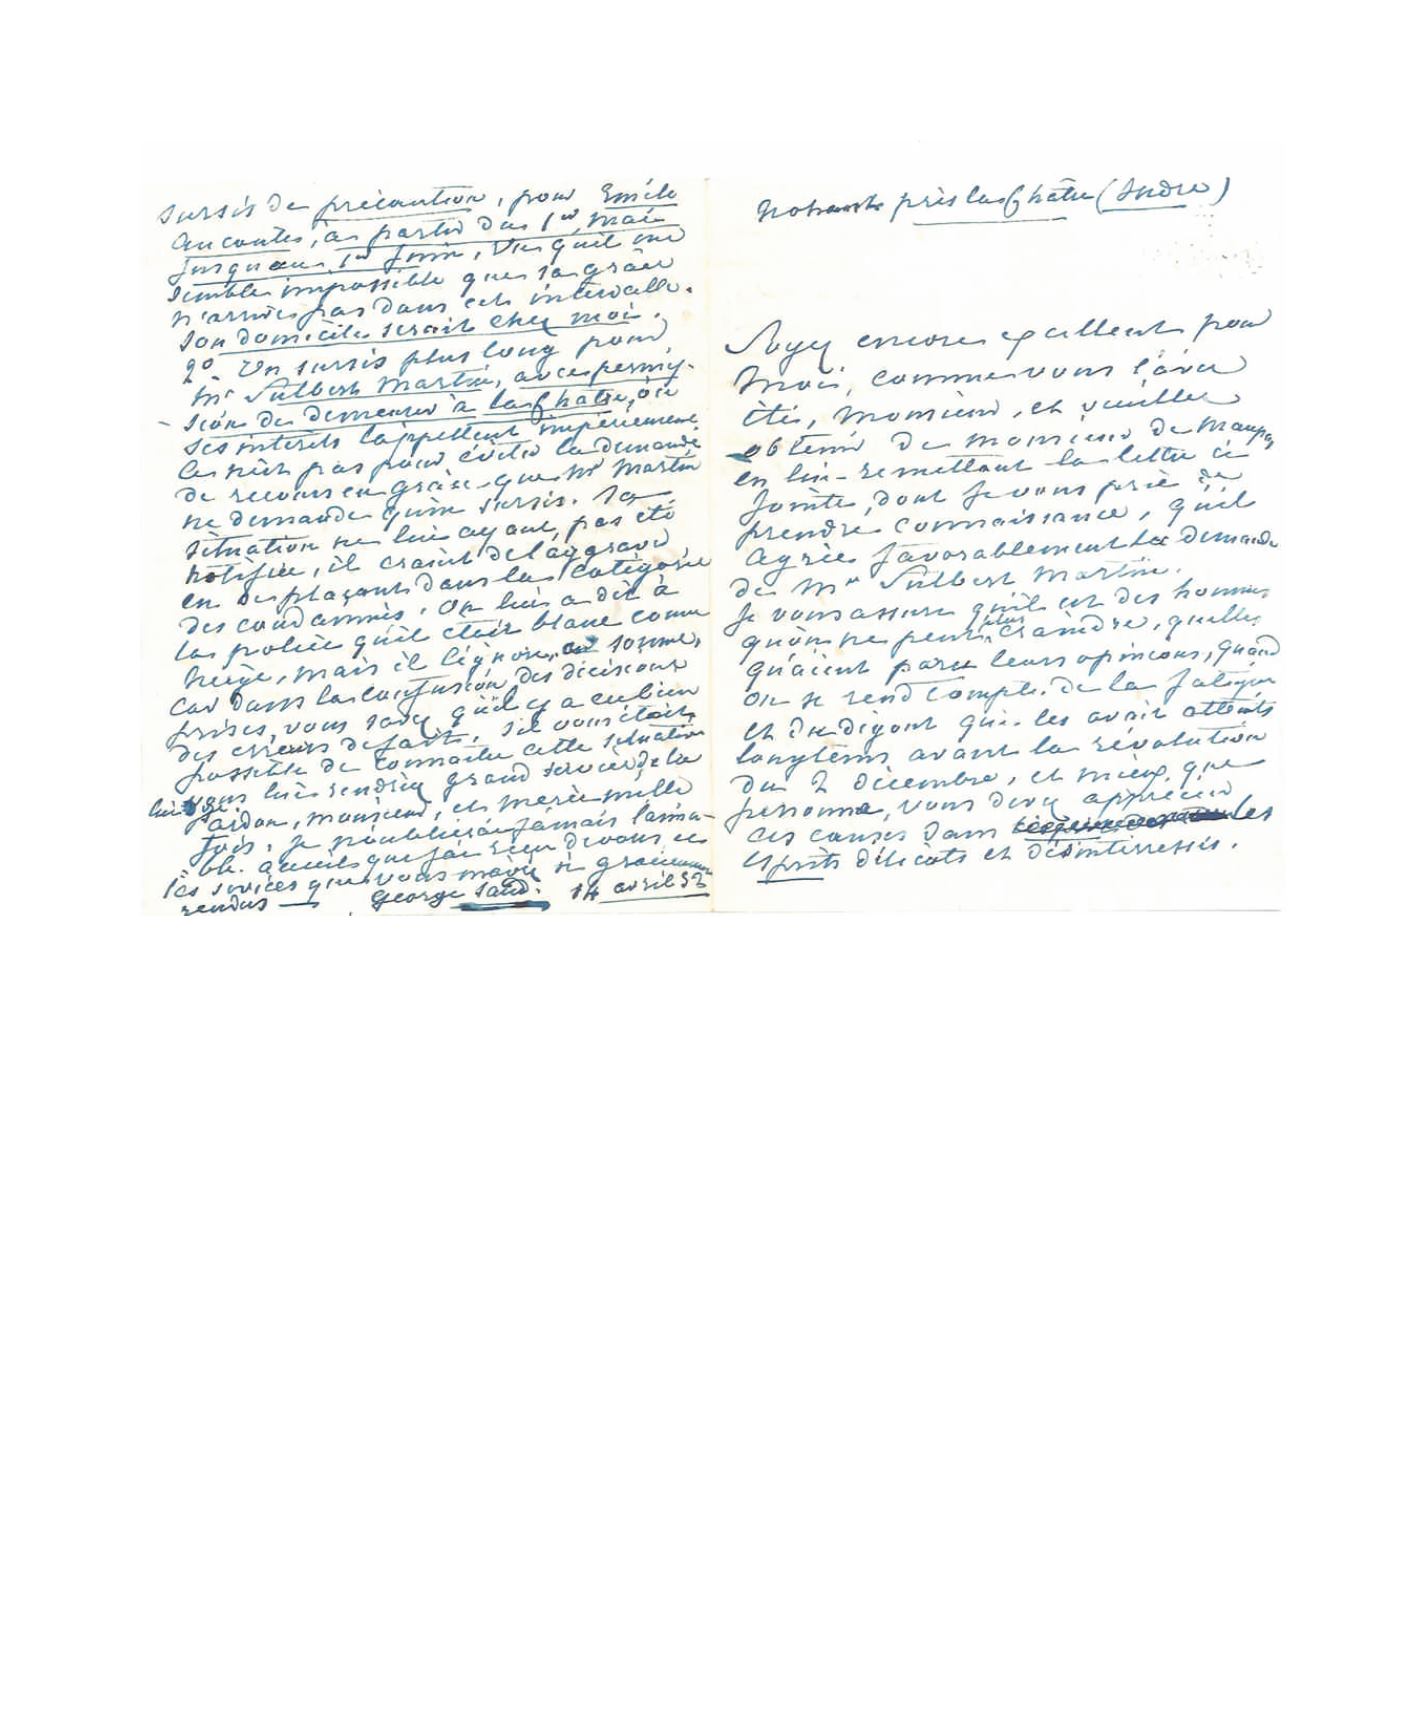 Nohant près la Châtre (Indre)
Soyez encore excellent pour
moi, comme vous l'avez
été, monsieur, et veuillez
obtenir de monsieur de Maupas
en lui remettant la lettre ci
jointe, dont je vous prie de
prendre connaissance, qu'il
agrée favorablement la demande
de Mr Sulbert Martin.
Je vous assure qu'il est des hommes
qu'on ne peut plus craindre, quelles
qu'aient paru leurs opinions, quand
on se rend compte de la fatigue
et du dégout qui les avait atteints
longtems avant la révolution
du 2 décembre, et mieux que
personne, vous devez apprécier
ces causes dans les
esprits délicats et désinterressés.
sursis de précaution, pour Emile
Aucante, à partir du 1er mai
jusqu'au 1er juin, vu qu'il me
semble impossible que sa grâce
n'arrive pas dans cet intervalle.
Son domicile serait chez moi.
2o. Un sursis plus long pour
Mr Sulbert Martin, avec permis-
sion de demeurer à la Châtre, où
ses interets l'appellent impérieusement
Ce n'est pas pour éviter la demande
de recours en grâce que Mr Martin
ne demande qu'un sursis. Sa
situation ne lui ayant pas été
notifiée, il craint de l'aggraver
en se plaçant dans la catégorie
des condamnés. On lui a dit à
la police qu'il était blanc comme
neige, mais il l'ignore, en somme,
car dans la confusion des décisions
prises, vous savez qu'il y a eu bien
des erreurs de faits. S'il vous était
possible de connaitre cette situation
vous lui rendriez grand service de la
lui dire.
Pardon, monsieur, et merci mille
fois. Je n'oublierai jamais l'aima-
ble accueil que j'ai reçu de vous et
les services que vous m'avez si gracieusement
rendus — George Sand. 14 avril 52